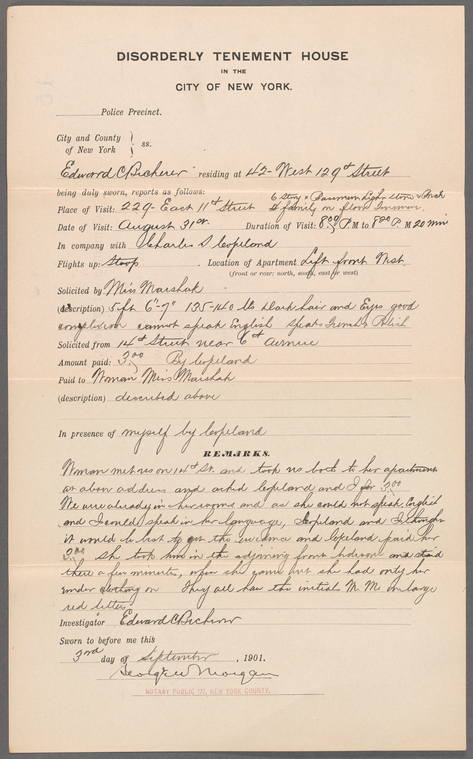 DISORDERLY TENEMENT HOUSE
IN THE
CITY OF NEW YORK.
Police Precinct.
City and County
of New York } ss.
Edward C Becherer residing at 42 West 129th Street
being duly sworn, reports as follows: 6 Story
Place of Visit: 229 East 11th Street 4 family on floor
Date of Visit: August 31st Duration of Visit: 8 00 P. M to 8 20 P. M 20 min
In company with Charles S Copeland
Flights up: Stoop Location of Apartment Left front West
(front or rear: north, south, east or west)
Solicited by Miss Marshak
(description) 5 ft 6"-7" 135-140 lbs Dark hair and Eyes good
complexion cannot speak English speaks French & Polish
Solicited from 14th Street near 6th avenue
Amount paid: 3.00 By Copeland
Paid to Woman Miss Marshak
(description) described above
In presence of myself by Copeland
REMARKS.
Woman met us on 14th St. and took us both to her apartment
at above address and asked Copeland and I for 3.00
We are already in her rooms and as she could not speak English
and I could speak in her language, Copeland and I thought
it would be best to get the evidence and Copeland paid her
3.00 She took him in the adjoining front bedroom and staid
there a few minutes, when she came out she had only her
under on They all had the initial M. M. in large
red letters
Investigator Edward C Becherer
Sworn to before me this
3rd day of September, 1901.
George W Morgan
NOTARY PUBLIC NEW YORK COUNTY.